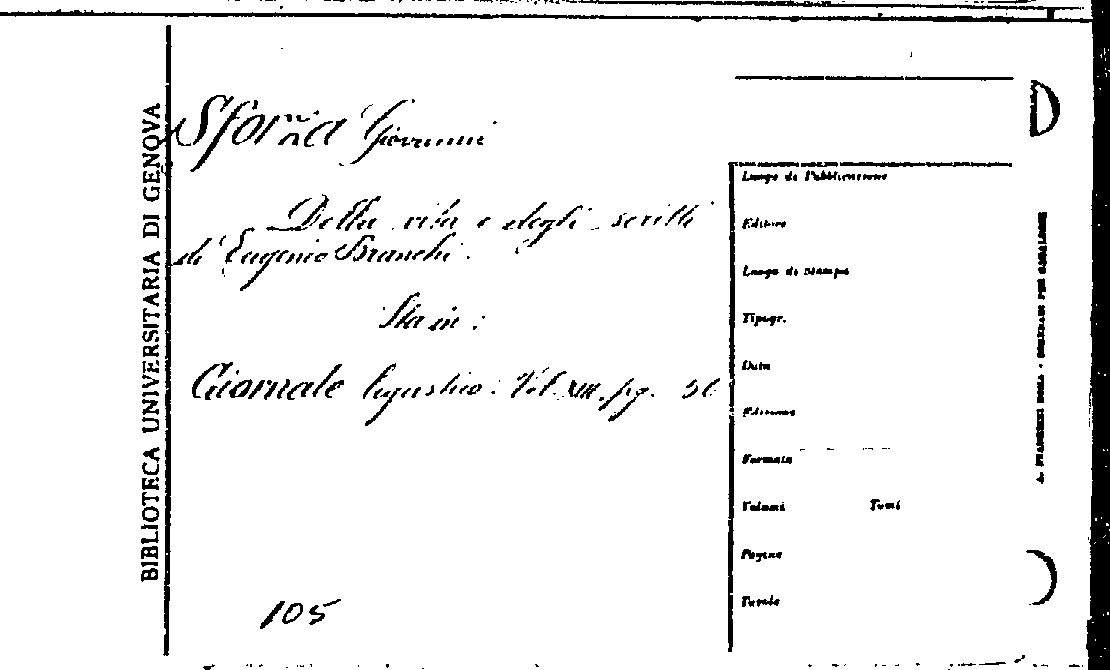 BIBLIOTECA UNIVERSITARIA DI GENOVA
Sforza Giovanni
Della vita e degli scritti
di Eugenio Branchi.
Sta in:
Giornale ligustico: Vol. XIII. pg.
105
Luogo di Pubblicazione
Editore
Luogo di stampa
Tipogr.
Data
Edizione
Formato
Volumi Tomi
Pagine
Tavole